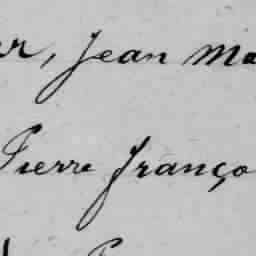 er, Jean Ma
Pierre Franço